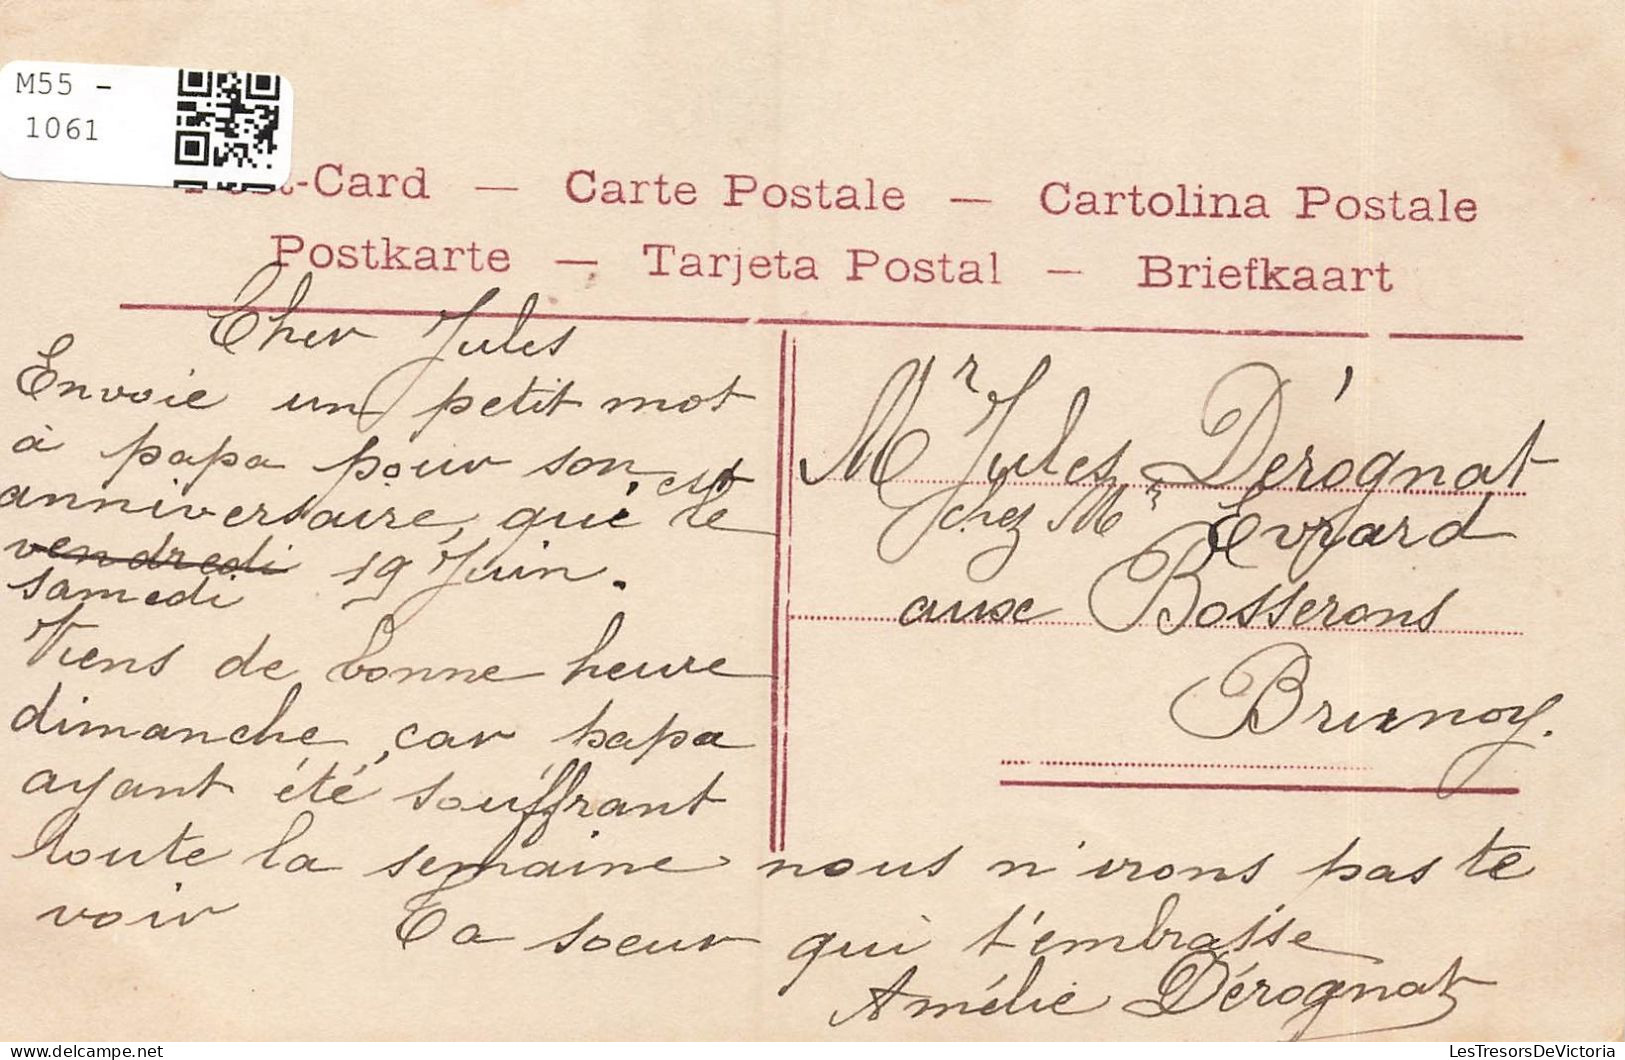 M55 -
1061
Post-Card — Carte Postale — Cartolina Postale
Postkarte — Tarjeta Postal — Briefkaart
Cher Jules
Envoie un petit mot
à papa pour son
anniversaire, qui est le
vendredi 19 Juin.
samedi
Viens de bonne heure
dimanche, car papa
ayant été souffrant
toute la semaine nous n'irons pas te
voir Ta soeur qui t'embrasse
Amélie Dérognat
Mr Jules Dérognat
chez Mr Evrard
aux Bosserons
Brunoy.
LesTresorsDeVictoria